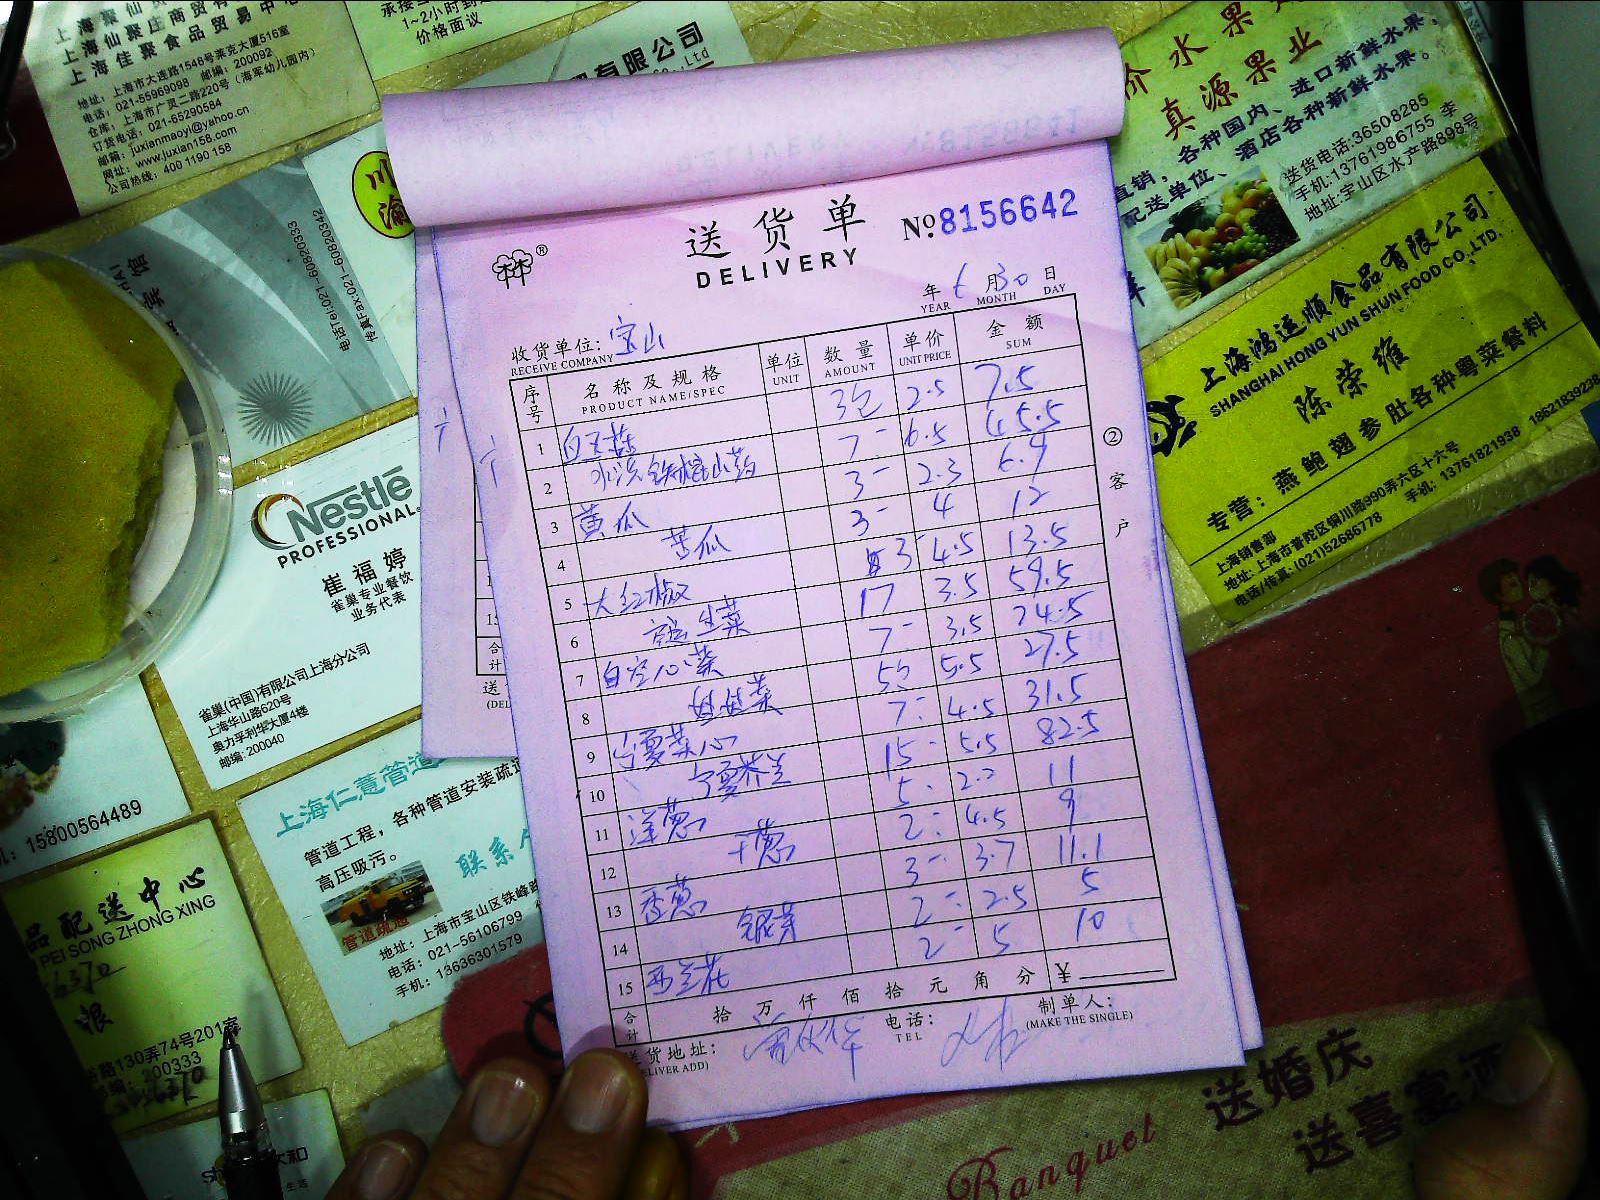 上海仙聚庄商贸有
上海佳聚食品贸易中心
地址：上海市大连路1548号莱克大厦516室
电话：021-55969098 邮编：200092
仓库：上海市广灵二路220号（海军幼儿园内）
订货电话：021-65290584
邮箱：juxianmaoyi@yahoo.cn
网址：www.juxian158.com
公司热线：400 1190 158
1~2小时到
价格面议
有限公司
Co.,Ltd
川
渝
电话Tel:021-60820342
传真Fax:021-60820333
价水果
真源果业
直销，各种国内、进口新鲜水果，
配送单位、酒店各种新鲜水果。
送货电话:36508285
手机:13761986755 李
地址:宝山区水产路898号
上海鸿运顺食品有限公司
SHANGHAI HONG YUN SHUN FOOD CO.,LTD.
陈荣维
专营：燕鲍翅参肚各种粤菜餐料
上海销售部
地址:上海市普陀区铜川路990弄六区十六号
电话/传真:(021)52686778 手机:13761821938 18621839238
Nestlé
PROFESSIONAL
崔福婷
雀巢专业餐饮
业务代表
雀巢(中国)有限公司上海分公司
上海华山路620号
奥力孚利华大厦4楼
邮编:200040
15800564489
上海仁薏管道
管道工程，各种管道安装疏通
高压吸污。
联系
管道疏通
地址：上海市宝山区铁峰路
电话：021-56106799
手机：13636301579
品配送中心
PEI SONG ZHONG XING
路130弄74号201室
邮编：200333
送货单
DELIVERY
№8156642
年 6 月 30 日
YEAR MONTH DAY
收货单位：宝山
RECEIVE COMPANY
序号 名称及规格 单位 数量 单价 金额
PRODUCT NAME/SPEC UNIT AMOUNT UNIT PRICE SUM
1 白玉菇 3包 2.5 7.5
2 铁棍山药 7- 6.5 45.5
3 黄瓜 3- 2.3 6.9
4 苦瓜 3- 4 12
5 大红椒 3- 4.5 13.5
6 生菜 17 3.5 59.5
7 白空心菜 7- 3.5 24.5
8 娃娃菜 5 5.5 27.5
9 宁夏菜心 7- 4.5 31.5
10 宁夏芥兰 15- 5.5 82.5
11 洋葱 5- 2.2 11
12 干葱 2- 4.5 9
13 香葱 3- 3.7 11.1
14 银芽 2- 2.5 5
15 西兰花 2- 5 10
合计 拾万仟佰拾元角分 ¥
送货地址： 电话： 制单人：
(DELIVER ADD) TEL (MAKE THE SINGLE)
②客户
Banquet
送婚庆
送喜宴酒